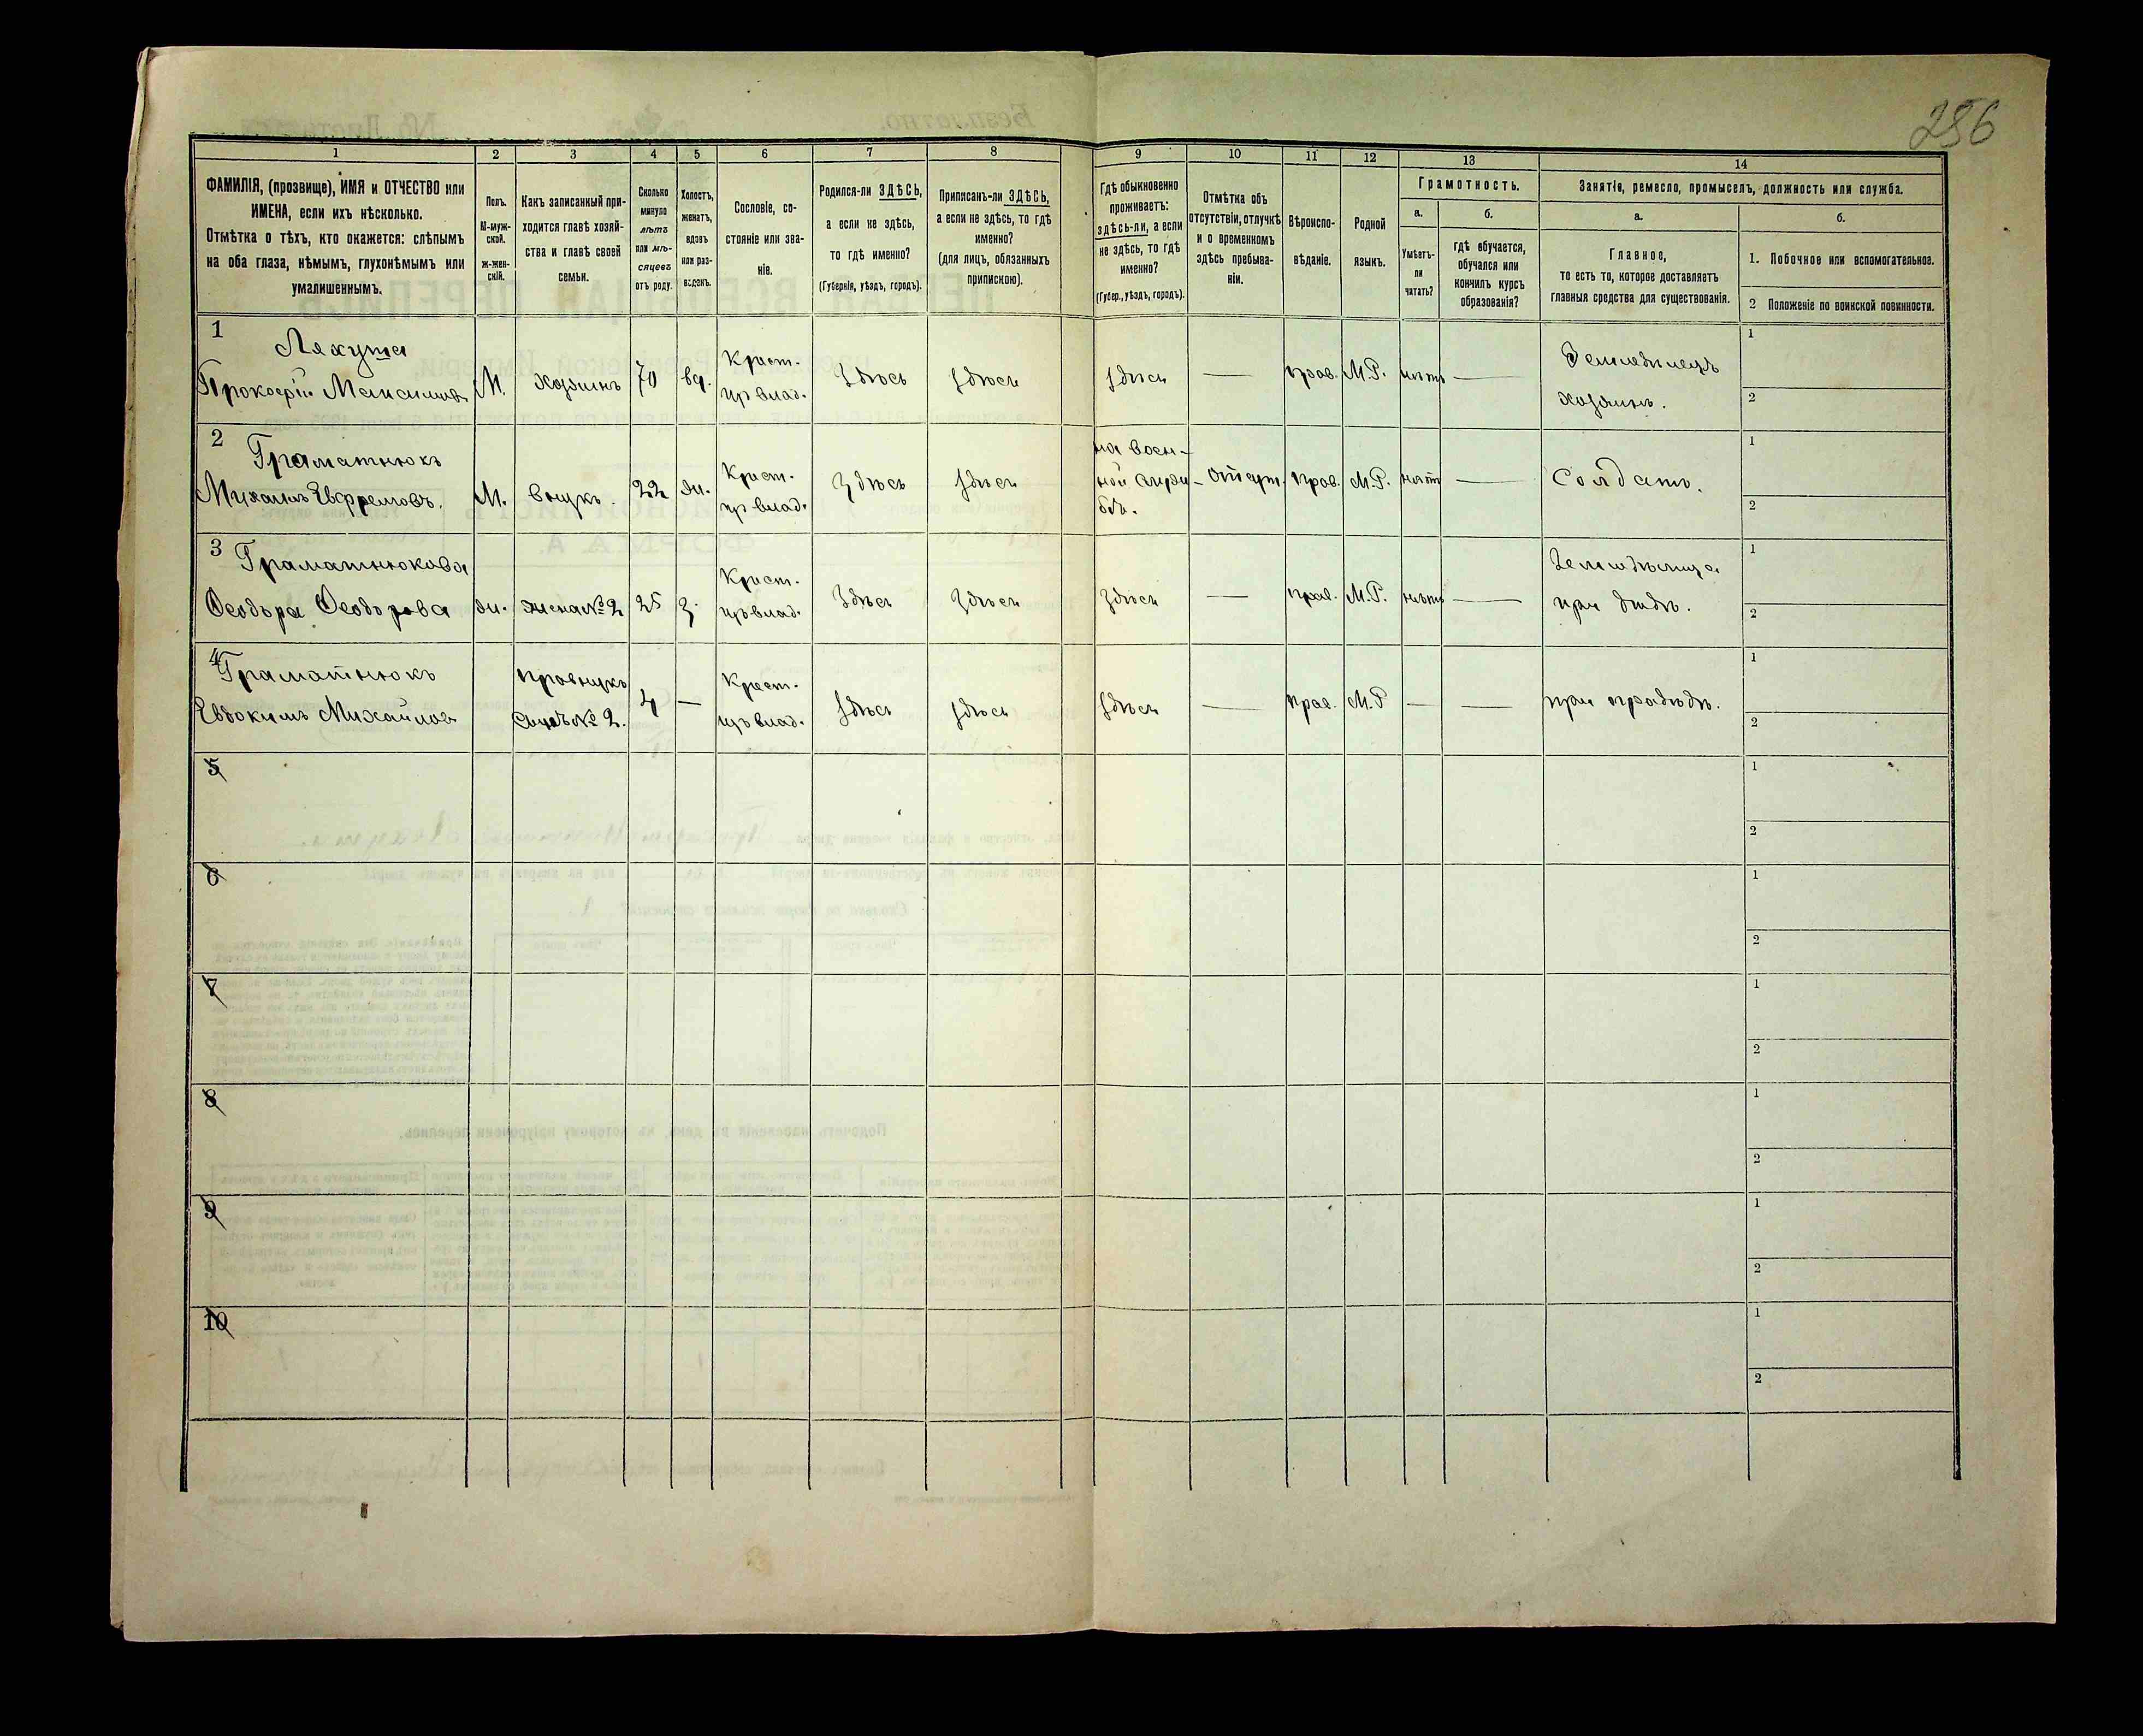 286
1 2 3 4 5 6 7 8 9 10 11 12 13 14
ФАМИЛІЯ, (прозвище), ИМЯ и ОТЧЕСТВО или
ИМЕНА, если ихъ нѣсколько.
Отмѣтка о тѣхъ, кто окажется: слѣпымъ
на оба глаза, нѣмымъ, глухонѣмымъ или
умалишеннымъ.
Полъ.
М-муж-
ской.
ж-жен-
скій.
Какъ записанный при-
ходится главѣ хозяй-
ства и главѣ своей
семьи.
Сколько
минуло
лѣтъ
или мѣ-
сяцевъ
отъ роду.
Холостъ,
женатъ,
вдовъ
или раз-
веденъ.
Сословіе, со-
стояніе или зва-
ніе.
Родился-ли ЗДѢСЬ,
а если не здѣсь,
то гдѣ именно?
(Губернія, уѣздъ, городъ).
Приписанъ-ли ЗДѢСЬ,
а если не здѣсь, то гдѣ
именно?
(для лицъ, обязанныхъ
припискою).
Гдѣ обыкновенно
проживаетъ:
здѣсь-ли, а если
не здѣсь, то гдѣ
именно?
(Губер., уѣздъ, городъ).
Отмѣтка объ
отсутствіи, отлучкѣ
и о временномъ
здѣсь пребыва-
ніи.
Вѣроиспо-
вѣданіе.
Родной
языкъ.
Грамотность.
а.
Умѣетъ-
ли
читать?
б.
гдѣ обучается,
обучался или
кончилъ курсъ
образованія?
Занятіе, ремесло, промыселъ, должность или служба.
а.
Главное,
то есть то, которое доставляетъ
главныя средства для существованія.
б.
1. Побочное или вспомогательное.
2 Положеніе по воинской повинности.
1
Ляхута
Прокофій Максимовъ
М.
хозяинъ
70
вд.
Крест.
из влад.
Здѣсь
здѣсь
здѣсь
—
прав.
М.Р.
нѣтъ
—
Земледѣлецъ
хозяинъ.
1
2
2
Граматнюкъ
Михаилъ Евфремовъ.
М.
внукъ.
22
ж.
Крест.
из влад.
Здѣсь
здѣсь
на воен-
ной служ-
бѣ.
отсут.
прав.
М.Р.
нѣтъ
—
Солдатъ.
1
2
3
Граматнюкова
Ѳеодора Ѳеодорова
ж.
жена № 2
25
з.
Крест.
изъ влад.
Здѣсь
Здѣсь
Здѣсь
—
прав.
М.Р.
нѣтъ
—
при дѣдѣ.
1
2
4
Граматнюкъ
Евдокимъ Михайловъ
правнукъ
сынъ № 2.
4
—
Крест.
изъ влад.
здѣсь
здѣсь
здѣсь
—
прав.
М.Р
—
—
при прадѣдѣ.
1
2
5
1
2
6
1
2
7
1
2
8
1
2
9
1
2
10
1
2